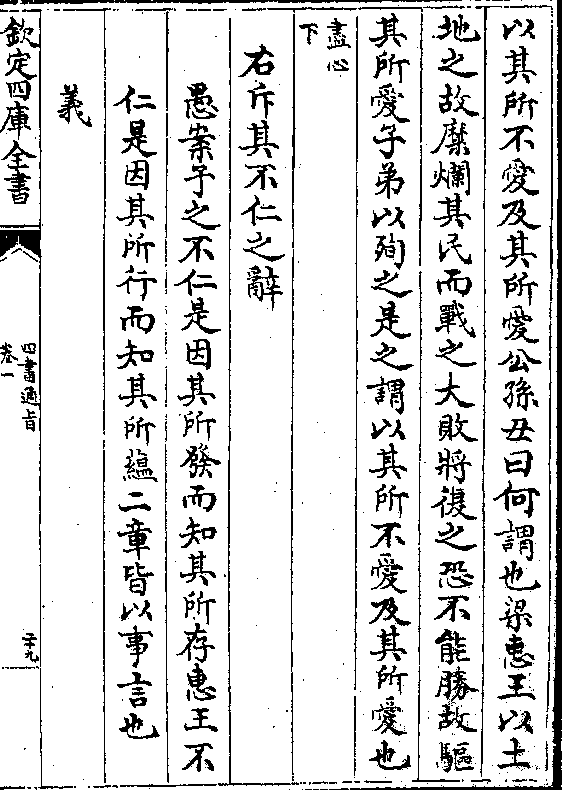 以其所不愛及其所愛公孫丑曰何謂也梁惠王以土
地之故糜爛其民而戰之大敗將復之恐不能勝故驅
其所愛子弟以殉之是之謂以其所不愛及其所愛也
盡心
下
右斥其不仁之辭
愚案予之不仁是因其所發而知其所存惠王不
仁是因其所行而知其所藴二章皆以事言也
義
欽定四庫全書
四書通旨
卷一
二十九